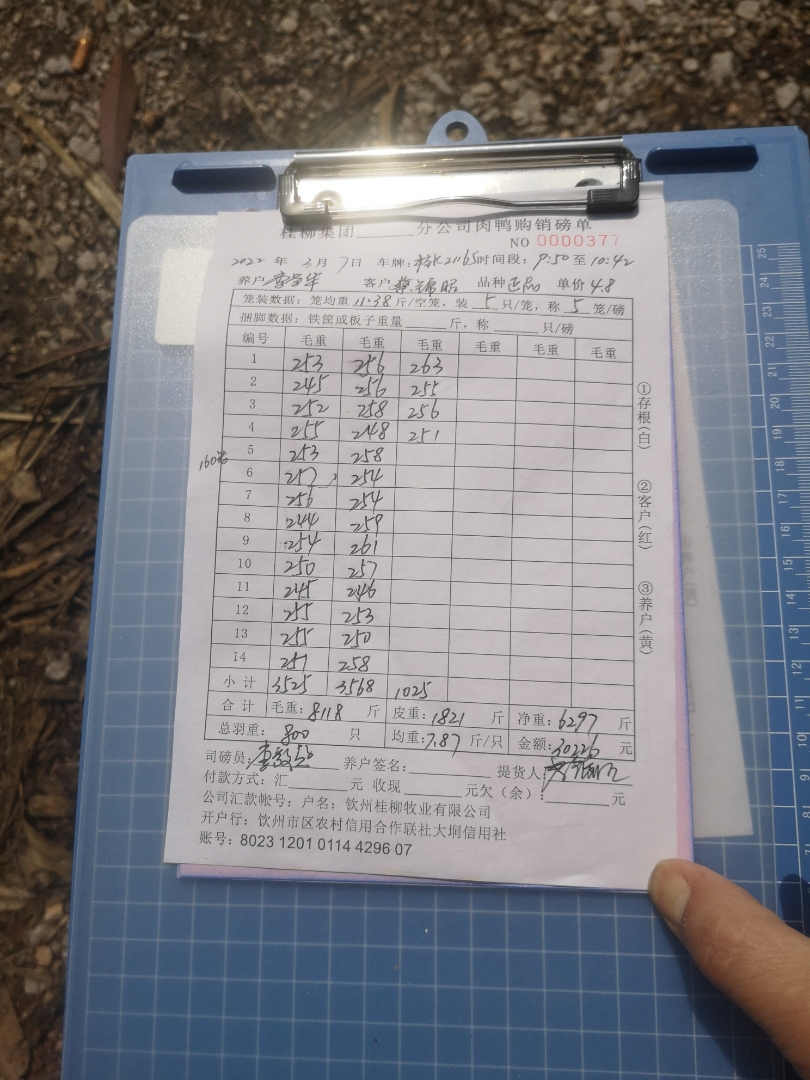 桂柳集团 分公司肉鸭购销磅单
NO 0000377
2022 年 3月 7日 车牌: 21165 时间段: 9:50 至 10:42
养户 客户 品种 正品 单价 4.8
笼装数据: 笼均重 11.38 斤/空笼, 装 5 只/笼, 称 5 笼/磅
捆脚数据: 铁筐或板子重量 斤, 称 只/磅
编号 毛重 毛重 毛重 毛重 毛重 毛重
1 253 256 263
2 245 256 255
3 252 258 256
4 255 248 251
5 253 258
160笼
6 257 254
7 256 254
8 244 259
9 254 261
10 250 257
11 245 246
12 255 253
13 255 250
14 251 258
小计 3525 3568 1025
合计 毛重: 8118 斤 皮重: 1821 斤 净重: 6297 斤
总羽重: 800 只 均重: 7.87 斤/只 金额: 30226 元
司磅员: 养户签名: 提货人:
付款方式: 汇 元 收现 元欠(余): 元
公司汇款帐号: 户名: 钦州桂柳牧业有限公司
开户行: 钦州市区农村信用合作联社大垌信用社
账号: 8023 1201 0114 4296 07
①存根(白)
②客户(红)
③养户(黄)
25
24
23
22
21
20
19
18
17
16
15
14
13
12
11
10
9
8
7